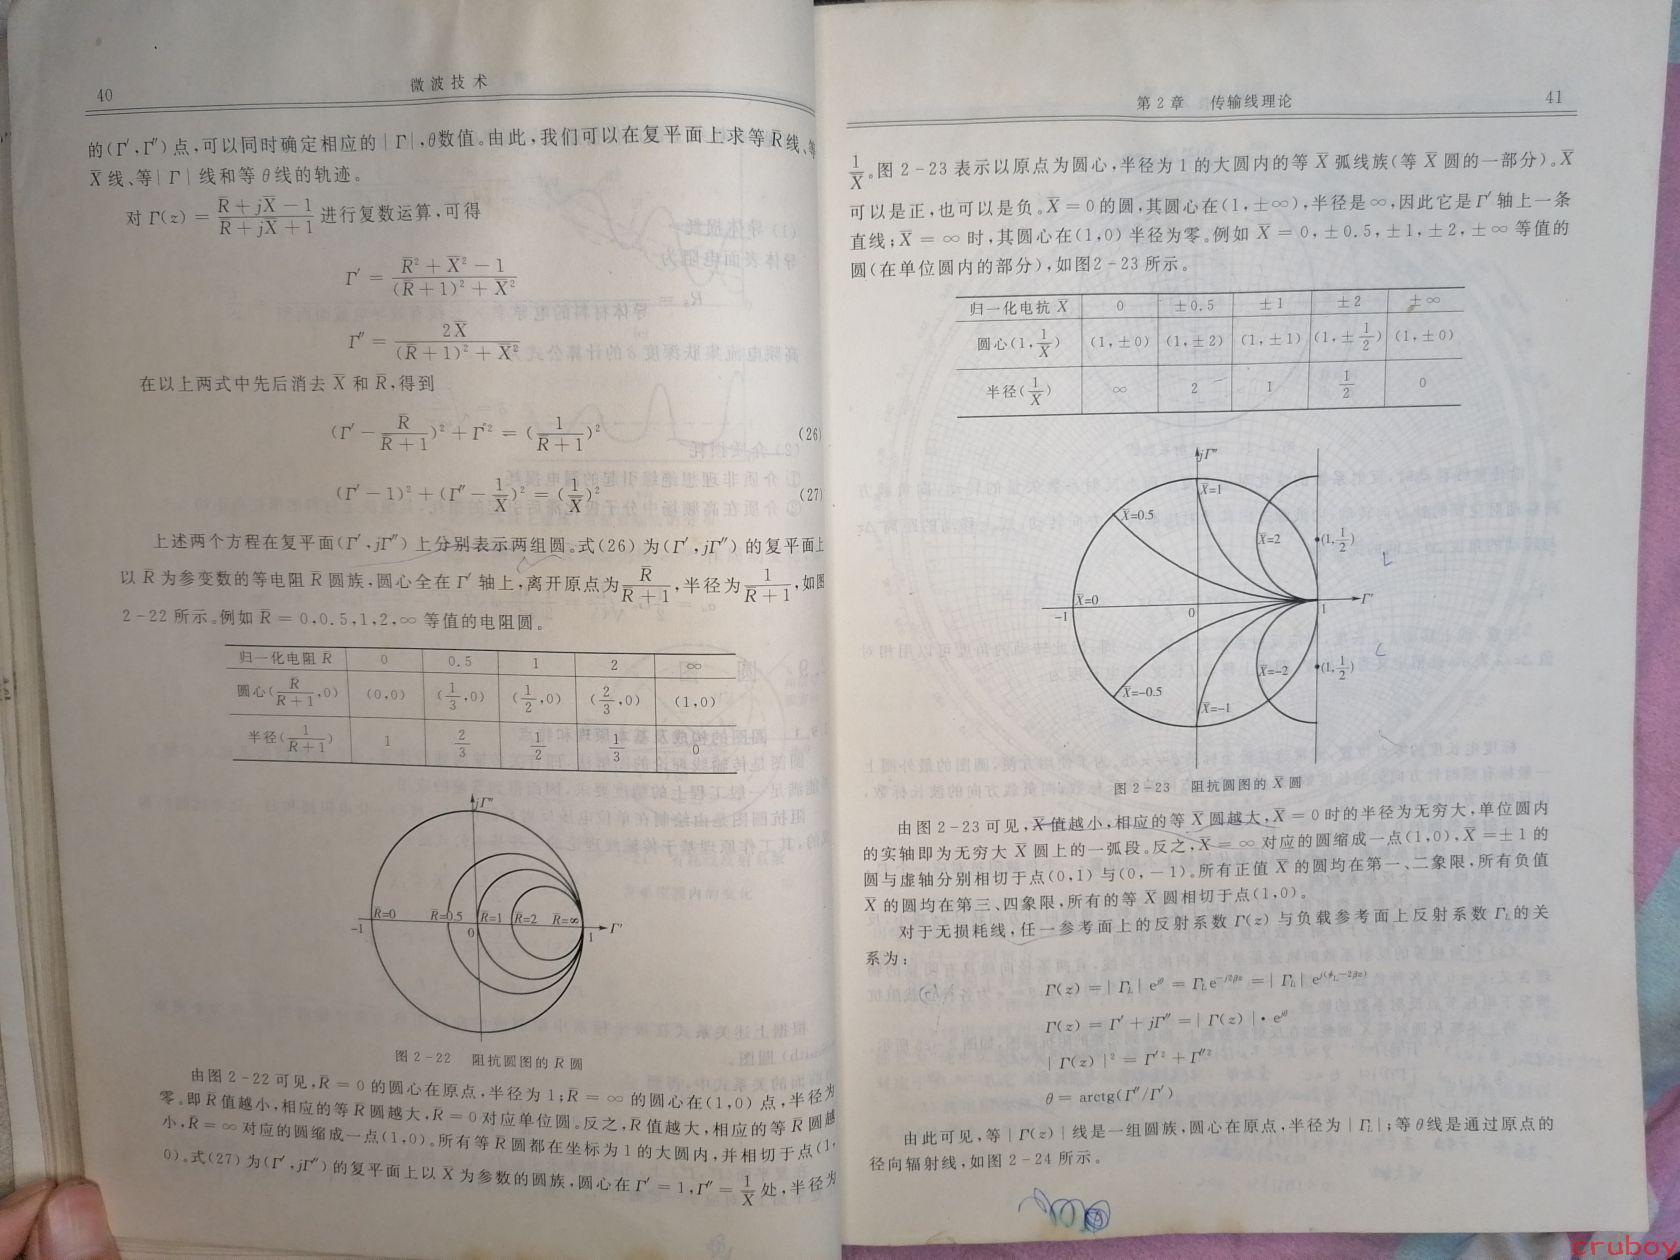 40
微波技术
的(Γ′,Γ″)点,可以同时确定相应的|Γ|,θ数值。由此,我们可以在复平面上求等R̄线、等
X̄ 线、等|Γ|线和等θ线的轨迹。
对 Γ(z) = (R̄ + jX̄ − 1)/(R̄ + jX̄ + 1) 进行复数运算,可得
Γ′ = (R̄² + X̄² − 1)/((R̄ + 1)² + X̄²)
Γ″ = 2X̄/((R̄ + 1)² + X̄²)
在以上两式中先后消去 X̄ 和 R̄,得到
(Γ′ − R̄/(R̄ + 1))² + Γ″² = (1/(R̄ + 1))² (26)
(Γ′ − 1)² + (Γ″ − 1/X̄)² = (1/X̄)² (27)
上述两个方程在复平面(Γ′,jΓ″)上分别表示两组圆。式(26)为(Γ′,jΓ″)的复平面上
以 R̄ 为参变数的等电阻 R̄ 圆族,圆心全在 Γ′ 轴上,离开原点为 R̄/(R̄ + 1),半径为 1/(R̄ + 1),如图
2-22 所示。例如 R̄ = 0,0.5,1,2,∞ 等值的电阻圆。
归一化电阻 R̄ 0 0.5 1 2 ∞
圆心(R̄/(R̄ + 1),0) (0,0) (1/3,0) (1/2,0) (2/3,0) (1,0)
半径(1/(R̄ + 1)) 1 2/3 1/2 1/3 0
jΓ″
R̄=0 R̄=0.5 R̄=1 R̄=2 R̄=∞
−1 0 1 Γ′
图 2-22 阻抗圆图的 R̄ 圆
由图 2-22 可见,R̄ = 0 的圆心在原点,半径为 1;R̄ = ∞ 的圆心在(1,0)点,半径为
零。即 R̄ 值越小,相应的等 R̄ 圆越大,R̄ = 0 对应单位圆。反之,R̄ 值越大,相应的等 R̄ 圆越
小,R̄ = ∞ 对应的圆缩成一点(1,0)。所有等 R̄ 圆都在坐标为 1 的大圆内,并相切于点(1,
0)。式(27)为(Γ′,jΓ″)的复平面上以 X̄ 为参数的圆族,圆心在 Γ′ = 1,Γ″ = 1/X̄ 处,半径为
第 2 章 传输线理论
41
1/X̄。图 2-23 表示以原点为圆心,半径为 1 的大圆内的等 X̄ 弧线族(等 X̄ 圆的一部分)。X̄
可以是正,也可以是负。X̄ = 0 的圆,其圆心在(1,±∞),半径是∞,因此它是 Γ′ 轴上一条
直线;X̄ = ∞ 时,其圆心在(1,0)半径为零。例如 X̄ = 0,±0.5,±1,±2,±∞ 等值的
圆(在单位圆内的部分),如图2-23 所示。
归一化电抗 X̄ 0 ±0.5 ±1 ±2 ±∞
圆心(1,1/X̄) (1,±0) (1,±2) (1,±1) (1,±1/2) (1,±0)
半径(1/X̄) ∞ 2 1 1/2 0
jΓ″
X̄=1
X̄=0.5
X̄=2
(1,1/2)
L
X̄=0
−1 0 1 Γ′
C
(1,1/2)
X̄=−2
X̄=−0.5
X̄=−1
图 2-23 阻抗圆图的 X̄ 圆
由图 2-23 可见,X̄ 值越小,相应的等 X̄ 圆越大,X̄ = 0 时的半径为无穷大,单位圆内
的实轴即为无穷大 X̄ 圆上的一弧段。反之,X̄ = ∞ 对应的圆缩成一点(1,0),X̄ = ±1 的
圆与虚轴分别相切于点(0,1)与(0,−1)。所有正值 X̄ 的圆均在第一、二象限,所有负值
X̄ 的圆均在第三、四象限,所有的等 X̄ 圆相切于点(1,0)。
对于无损耗线,任一参考面上的反射系数 Γ(z) 与负载参考面上反射系数 Γ_L 的关
系为:
Γ(z) = |Γ_L| e^{jθ} = Γ_L e^{−j2βz} = |Γ_L| e^{j(φ_L−2βz)}
Γ(z) = Γ′ + jΓ″ = |Γ(z)|·e^{jθ}
|Γ(z)|² = Γ′² + Γ″²
θ = arctg(Γ″/Γ′)
由此可见,等|Γ(z)|线是一组圆族,圆心在原点,半径为|Γ_L|;等 θ 线是通过原点的
径向辐射线,如图 2-24 所示。
cruboy